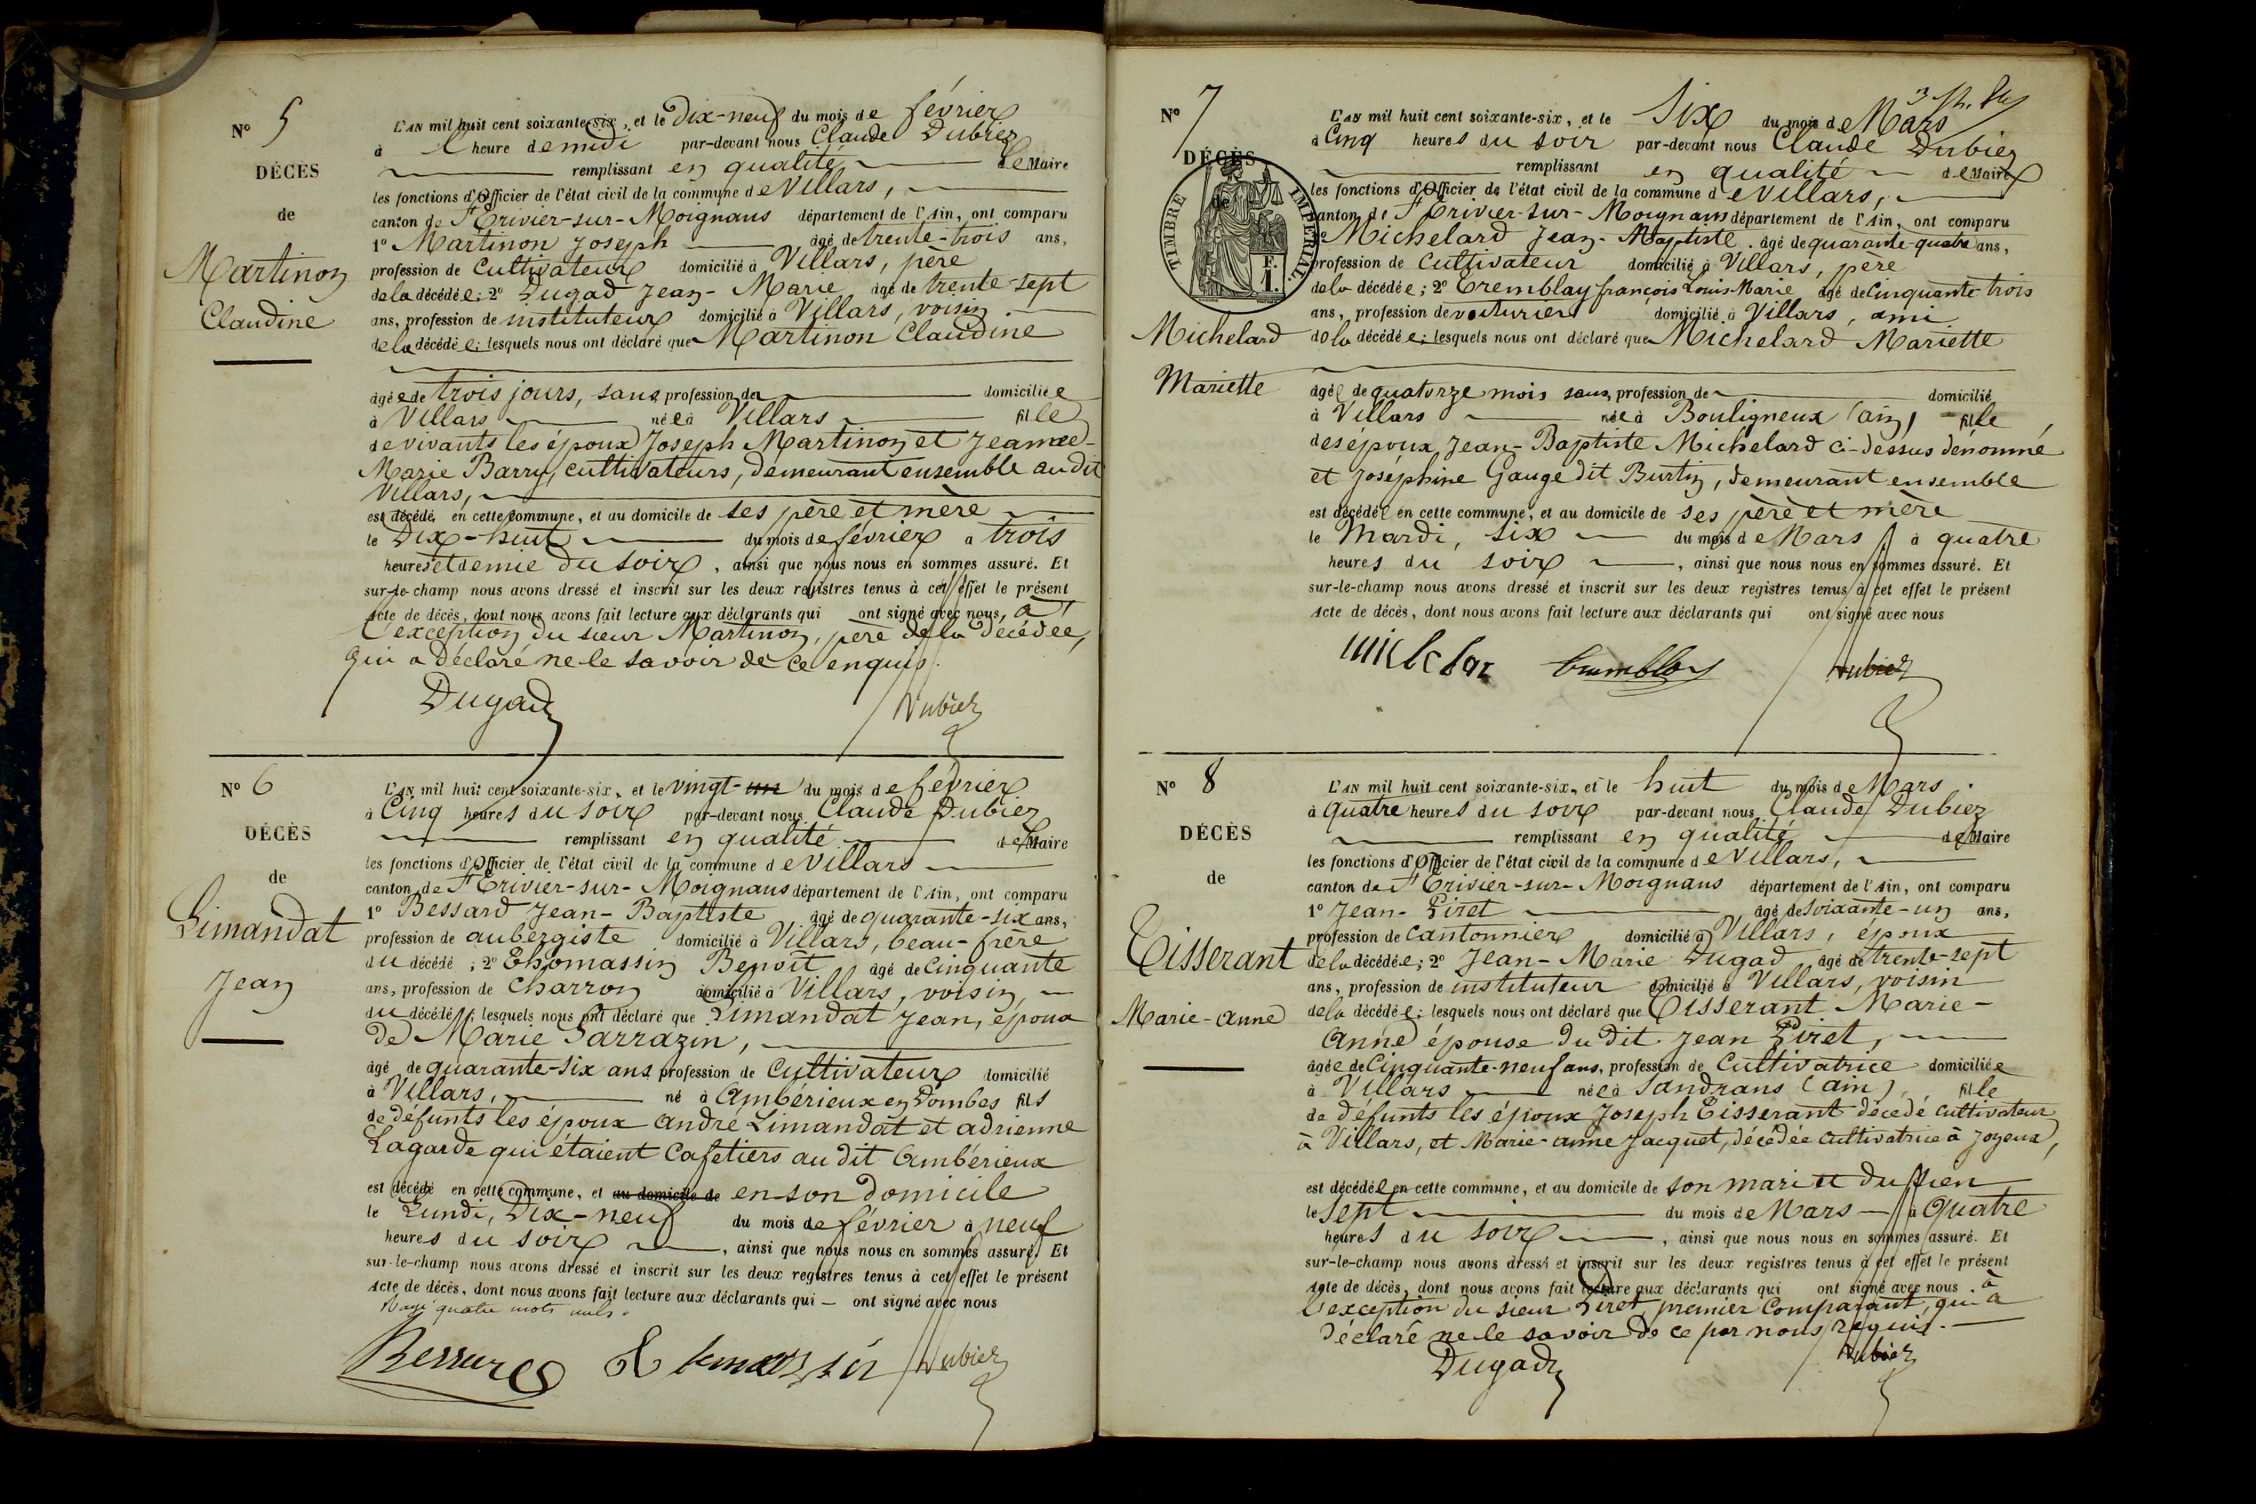 N° 5
DÉCÈS
de
Martinon
Claudine
L'AN mil huit cent soixante-six, et le Dix-neuf du mois de février
à l heure de midi par-devant nous Claude Dubiez
remplissant en qualité de Maire
les fonctions d'Officier de l'état civil de la commune de Villars,
canton de St Trivier-sur-Moignans département de l'Ain, ont comparu
1° Martinon Joseph âgé de trente-trois ans,
profession de Cultivateur domicilié à Villars, père
de la décédée; 2° Dugad Jean-Marie âgé de trente-sept
ans, profession de instituteur domicilié à Villars, voisin
de la décédée; lesquels nous ont déclaré que Martinon Claudine
âgée de trois jours, sans profession de domiciliée
à Villars née à Villars fille
de vivants les époux Joseph Martinon et Jeanne-
Marie Barry, cultivateurs, demeurant ensemble au dit
Villars,
est décédé en cette commune, et au domicile de ses père et mère
le Dix-huit du mois de février à trois
heures et demie du soir, ainsi que nous nous en sommes assuré. Et
sur-le-champ nous avons dressé et inscrit sur les deux registres tenus à cet effet le présent
Acte de décès, dont nous avons fait lecture aux déclarants qui ont signé avec nous, à
l'exception du sieur Martinon, père de la décédée,
qui a déclaré ne le savoir de ce enquis.
Dugad Dubiez
N° 6
DÉCÈS
de
Limandat
Jean
L'AN mil huit cent soixante-six, et le vingt-un du mois de février
à Cinq heures du soir par-devant nous Claude Dubiez
remplissant en qualité de Maire
les fonctions d'Officier de l'état civil de la commune de Villars
canton de St Trivier-sur-Moignans département de l'Ain, ont comparu
1° Bessard Jean-Baptiste, âgé de quarante-six ans,
profession de aubergiste domicilié à Villars, beau-frère
du décédé; 2° Thomassin Benoît âgé de Cinquante
ans, profession de Charron domicilié à Villars, voisin,
du décédé; lesquels nous ont déclaré que Limandat Jean, époux
de Marie Sarrazin,
âgé de quarante-six ans profession de Cultivateur domicilié
à Villars, né à Ambérieux en Dombes fils
de défunts les époux André Limandat et adrienne
Lagarde qui étaient Cafetiers au dit Ambérieux
est décédé en cette commune, et au domicile de en son domicile
le Lundi, Dix-neuf du mois de février à neuf
heures du soir, ainsi que nous nous en sommes assuré. Et
sur-le-champ nous avons dressé et inscrit sur les deux registres tenus à cet effet le présent
Acte de décès, dont nous avons fait lecture aux déclarants qui — ont signé avec nous
Rayé quatre mots nuls.
Bessard Thomassin Dubiez
N° 7
DÉCÈS
de
TIMBRE IMPERIAL
F.
1.
Michelard
Mariette
L'AN mil huit cent soixante-six, et le Six du mois de Mars
à Cinq heures du soir par-devant nous Claude Dubiez
remplissant en qualité de Maire
les fonctions d'Officier de l'état civil de la commune de Villars,
canton de St Trivier-sur-Moignans département de l'Ain, ont comparu
1° Michelard Jean-Baptiste. âgé de quarante-quatre ans,
profession de Cultivateur domicilié à Villars, père
de la décédée; 2° Tremblay françois Louis Marie âgé de Cinquante trois
ans, profession de voiturier domicilié à Villars, ami
de la décédée; lesquels nous ont déclaré que Michelard Mariette
âgée de quatorze mois sans profession de domicilié
à Villars née à Bouligneux (ain) fille
des époux Jean-Baptiste Michelard ci-dessus dénommé
et Joséphine Gauge dit Burtin, demeurant ensemble
est décédée en cette commune, et au domicile de ses père et mère
le Mardi, six du mois de Mars à quatre
heures du soir, ainsi que nous nous en sommes assuré. Et
sur-le-champ nous avons dressé et inscrit sur les deux registres tenus à cet effet le présent
Acte de décès, dont nous avons fait lecture aux déclarants qui ont signé avec nous
Tremblay Dubiez
N° 8
DÉCÈS
de
Tisserant
Marie-Anne
L'AN mil huit cent soixante-six, et le huit du mois de Mars
à quatre heures du soir par-devant nous Claude Dubiez
remplissant en qualité de Maire
les fonctions d'Officier de l'état civil de la commune de Villars,
canton de St Trivier-sur-Moignans département de l'Ain, ont comparu
1° Jean-Piret âgé de soixante-un ans,
profession de Cantonnier domicilié à Villars, époux
de la décédée; 2° Jean-Marie Dugad âgé de trente-sept
ans, profession de instituteur domicilié à Villars, voisin
de la décédée; lesquels nous ont déclaré que Tisserant Marie-
Anne épouse du dit Jean Piret,
âgée de Cinquante-neuf ans, profession de Cultivatrice domiciliée
à Villars née à Sandrans (ain), fille
de défunts les époux Joseph Tisserant décédé cultivateur
à Villars, et Marie-anne Jacquet, décédée cultivatrice à Joyeux,
est décédée en cette commune, et au domicile de son mari et du sien
le Sept du mois de Mars à quatre
heures du soir, ainsi que nous nous en sommes assuré. Et
sur-le-champ nous avons dressé et inscrit sur les deux registres tenus à cet effet le présent
Acte de décès, dont nous avons fait lecture aux déclarants qui ont signé avec nous. à
l'exception du sieur Piret, premier Comparant, qui a
déclaré ne le savoir de ce par nous requis.
Dugad Dubiez